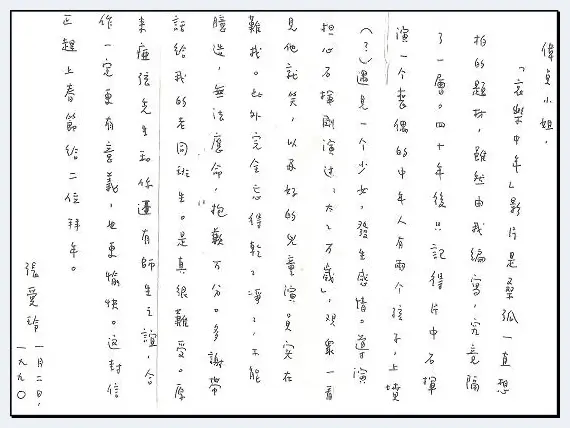 偉貞小姐，
「哀樂中年」影片是桑弧一直想
拍的題材，雖然由我編寫，究竟隔
了一層。四十年後只記得片中石揮
演一個喪偶的中年人有兩個孩子，上墳
（？）遇見一個少女，發生感情。導演
担心石揮剛演过「太太万歲」，观衆一看
見他就笑，以及好的兒童演員实在
難找。此外完全忘得乾乾淨淨，不能
臆造，無法應命，抱歉万分。多謝帶
話給我的老同班生。是真很難受。原
來瘂弦先生和你還有師生之誼，合
作一定更有意義，也更愉快。这封信
正趕上春節給二位拜年。
張愛玲
一月二日，
一九九〇